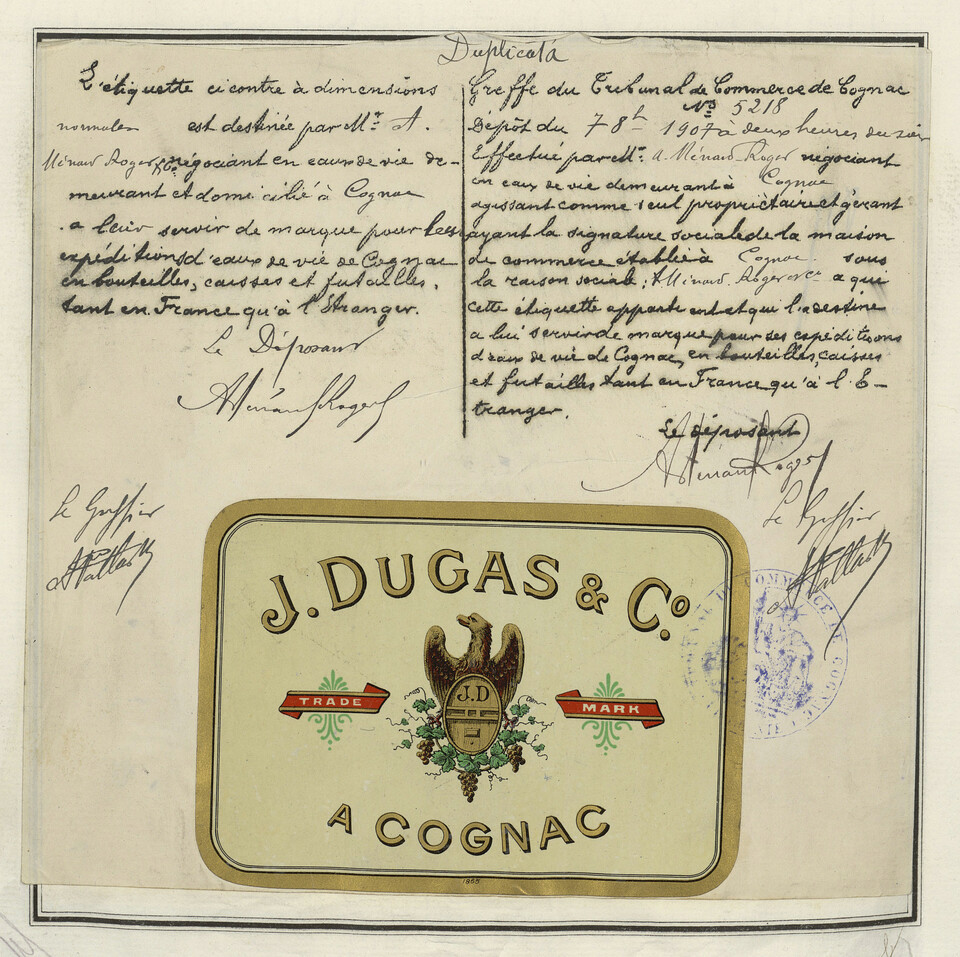 Duplicata
L'étiquette ci contre à dimensions
normales est destinée par Mr. A.
Ménard Roger & Co négociant en eaux de vie de-
meurant et domicilié à Cognac
a leur servir de marque pour les
expéditions d'eaux de vie de Cognac
en bouteilles, caisses et futailles,
tant en France qu'à l'Etranger.
Le Déposant
A Ménard Roger
Le Greffier
Greffe du Tribunal de Commerce de Cognac
No 5218
Dépôt du 7 8bre 1907 à deux heures du soir
Effectué par Mr. A. Ménard-Roger négociant
en eaux de vie demeurant à Cognac
agissant comme seul propriétaire et gérant
ayant la signature sociale de la maison
de commerce établie à Cognac sous
la raison sociale: A Ménard Roger & Co a qui
cette étiquette appartient et qui l'a destine
a lui servir de marque pour ses expéditions
d'eaux de vie de Cognac, en bouteilles, caisses
et futailles tant en France qu'à l'E-
tranger.
Le déposant
A Ménard Roger
Le Greffier
J. DUGAS & Co.
TRADE
J.D
MARK
A COGNAC
1865